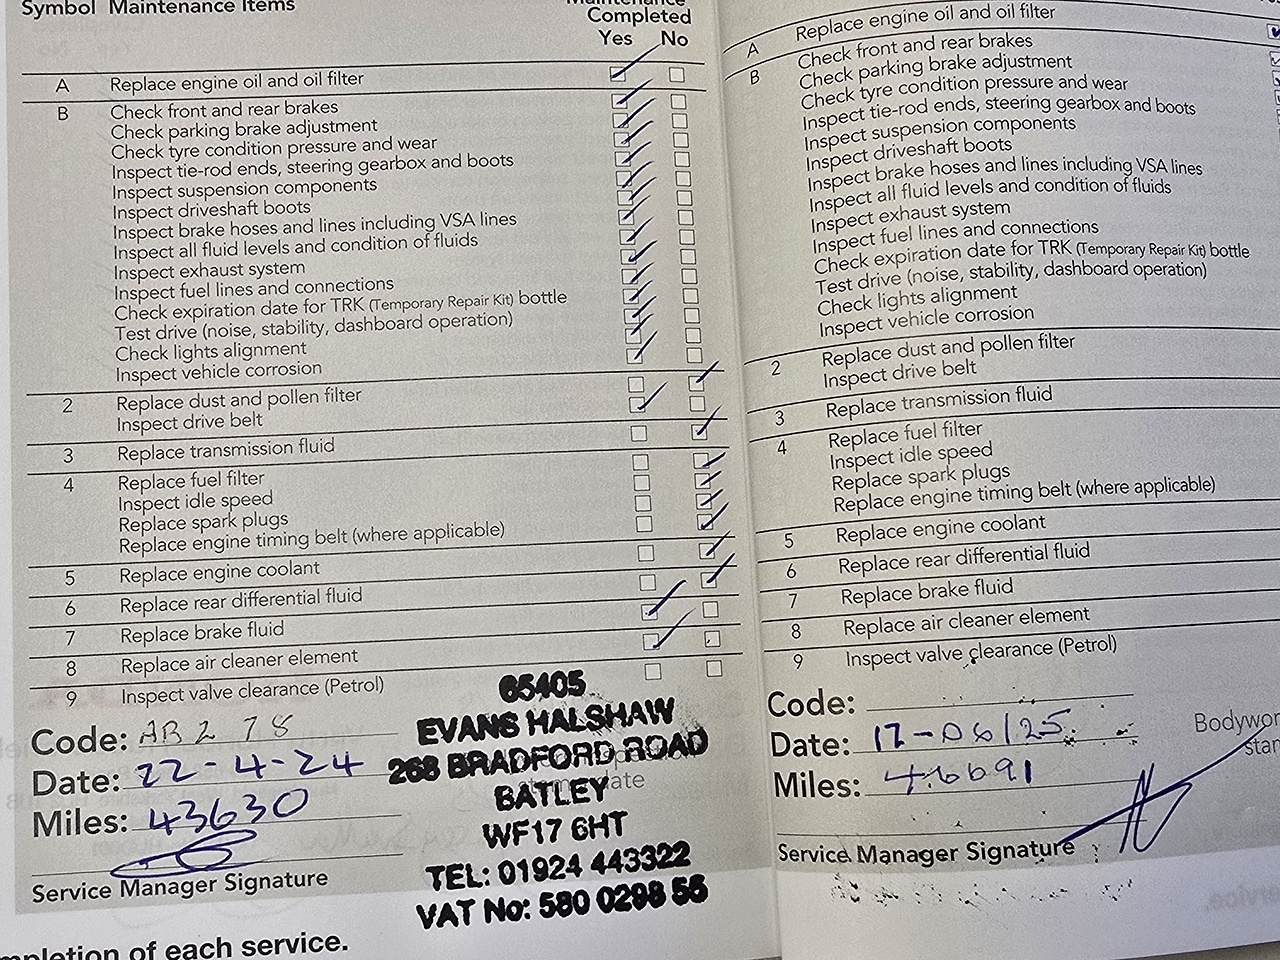 Symbol Maintenance Items
Maintenance
Completed
Yes No
A Replace engine oil and oil filter
B Check front and rear brakes
Check parking brake adjustment
Check tyre condition pressure and wear
Inspect tie-rod ends, steering gearbox and boots
Inspect suspension components
Inspect driveshaft boots
Inspect brake hoses and lines including VSA lines
Inspect all fluid levels and condition of fluids
Inspect exhaust system
Inspect fuel lines and connections
Check expiration date for TRK (Temporary Repair Kit) bottle
Test drive (noise, stability, dashboard operation)
Check lights alignment
Inspect vehicle corrosion
2 Replace dust and pollen filter
Inspect drive belt
3 Replace transmission fluid
4 Replace fuel filter
Inspect idle speed
Replace spark plugs
Replace engine timing belt (where applicable)
5 Replace engine coolant
6 Replace rear differential fluid
7 Replace brake fluid
8 Replace air cleaner element
9 Inspect valve clearance (Petrol)
Code: AB2 78
Date: 22-4-24
Miles: 43630
Service Manager Signature
65405
EVANS HALSHAW
268 BRADFORD ROAD
BATLEY
WF17 6HT
TEL: 01924 443322
VAT No: 580 0298 56
mpletion of each service.
A Replace engine oil and oil filter
B Check front and rear brakes
Check parking brake adjustment
Check tyre condition pressure and wear
Inspect tie-rod ends, steering gearbox and boots
Inspect suspension components
Inspect driveshaft boots
Inspect brake hoses and lines including VSA lines
Inspect all fluid levels and condition of fluids
Inspect exhaust system
Inspect fuel lines and connections
Check expiration date for TRK (Temporary Repair Kit) bottle
Test drive (noise, stability, dashboard operation)
Check lights alignment
Inspect vehicle corrosion
2 Replace dust and pollen filter
Inspect drive belt
3 Replace transmission fluid
4 Replace fuel filter
Inspect idle speed
Replace spark plugs
Replace engine timing belt (where applicable)
5 Replace engine coolant
6 Replace rear differential fluid
7 Replace brake fluid
8 Replace air cleaner element
9 Inspect valve clearance (Petrol)
Code:
Date: 17-06/25
Miles: 46691
Service Manager Signature
Bodywor
star